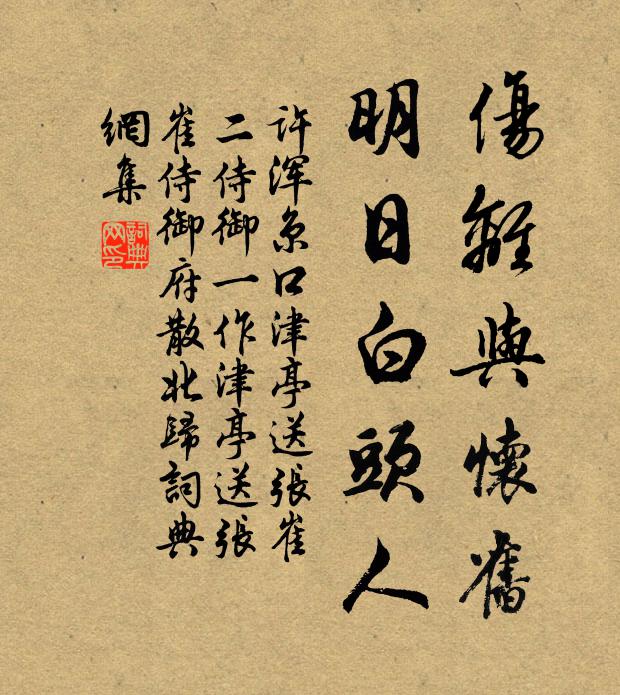 傷離與懷舊
明日白頭人
许渾京口津亭送張崔
二侍御一作津亭送張
崔侍御府散北歸詞典
網集
詞典
网印